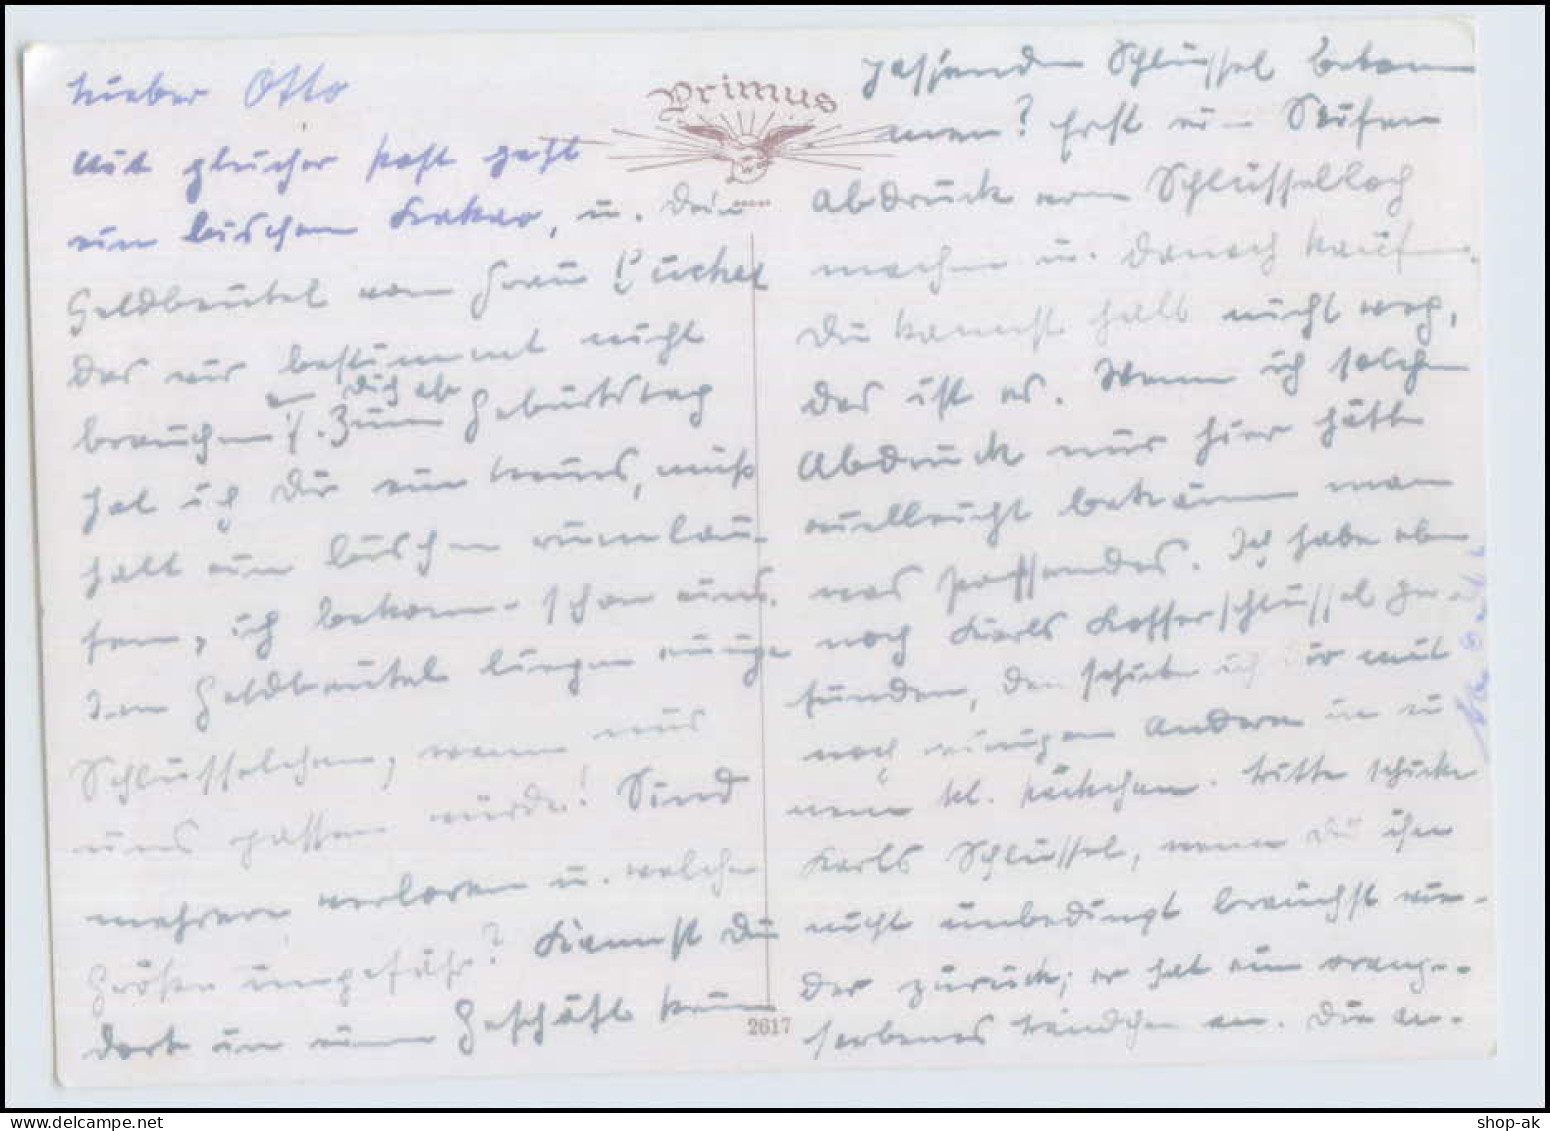 Lieber Otto
Mit gleicher Post geht
ein bischen Kakao, u. Dein
Geldbeutel von Frau
das wir bestimmt nicht
an Dich ab
brauchen. Zum Geburtstag
hat ich Dir ein neues, muß
halt ein bischen rumlau-
fen, ich bekom schon eins.
Dem Geldbeutel liegen einige
Schlüsselchen, wenn nur
eins passen würde! Sind
mehrere verloren u. welche
Größe ungefähr? Kannst Du
dort in einem Geschäft kein
Primus
W
2617
passenden Schlüssel bekom
men? Erst ein Seifen
Abdruck vom Schlüsselloch
machen u. danach kaufen.
Du kannst halt nicht weg,
das ist es. Wenn ich solchen
Abdruck nur hier hätte
vielleicht bekäme man
was passendes. Ich habe eben
noch Karls Kofferschlüssel ge
funden, den schicke ich Dir mit
noch einigen andern in ei
nem kl. Päckchen. Bitte schicke
Karls Schlüssel, wenn Du ihn
nicht unbedingt brauchst wie-
der zurück; er hat ein orange-
farbenes Bändchen an. Die an-